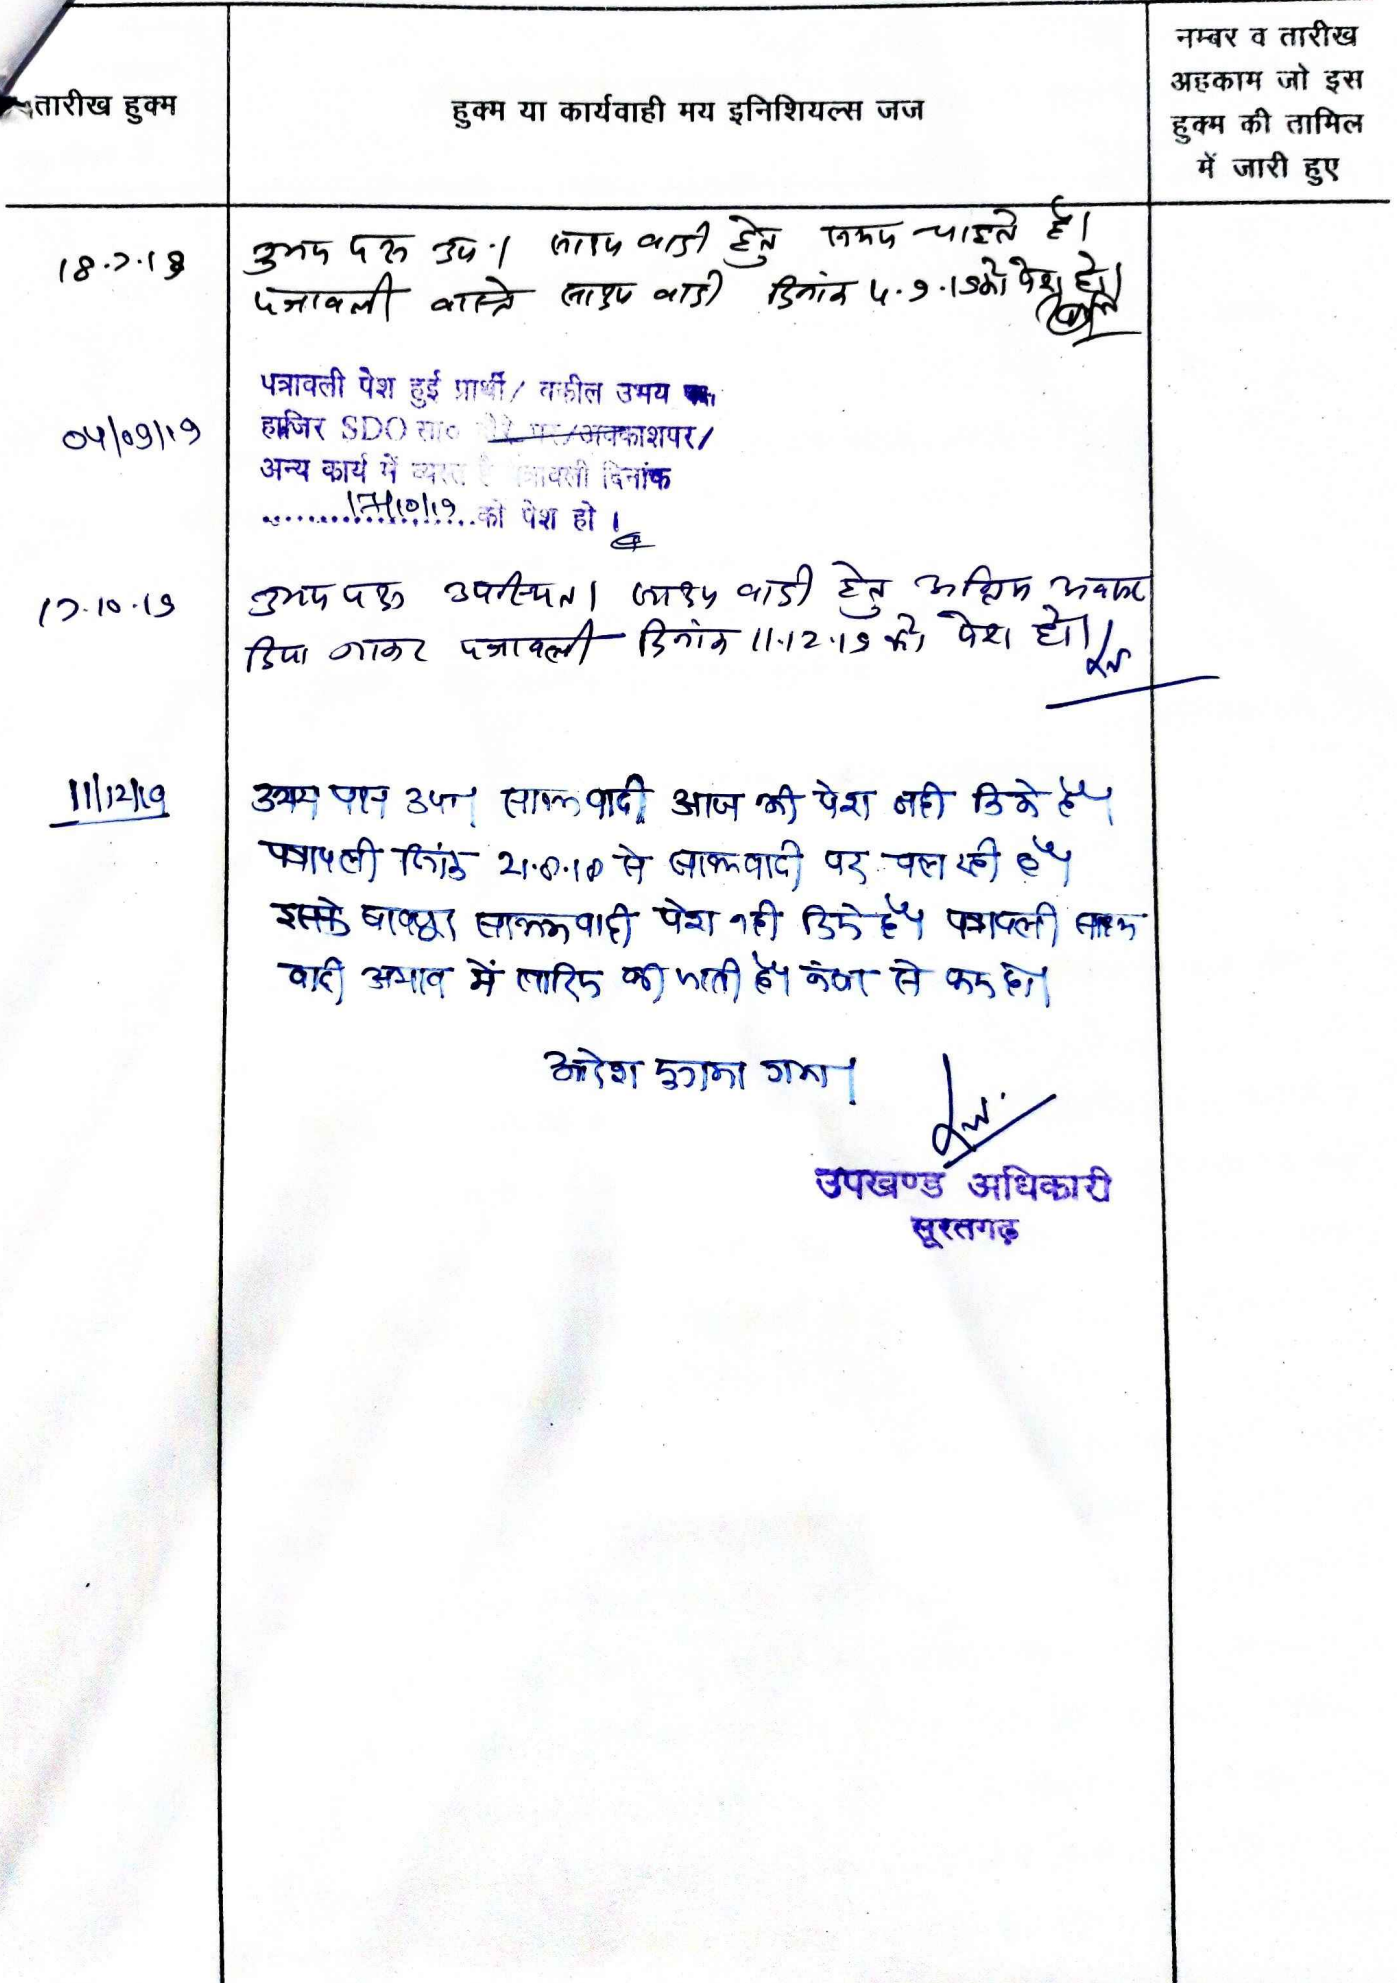 तारीख हुक्म
हुक्म या कार्यवाही मय इनिशियल्स जज
नम्बर व तारीख
अहकाम जो इस
हुक्म की तामिल
में जारी हुए
18.7.19
उभय पक्ष उप.। साक्ष्य वादी हेतु समय चाहते हैं।
पत्रावली वास्ते साक्ष्य वादी दिनांक 4.9.19 को पेश हो।
04/09/19
पत्रावली पेश हुई प्रार्थी/ वकील उभय पक्ष
हाजिर SDO सा० दौरे पर/अवकाशपर/
अन्य कार्य में व्यस्त है पत्रावली दिनांक
17/10/19 को पेश हो।
17.10.19
उभय पक्ष उपस्थित। साक्ष्य वादी हेतु अन्तिम अवसर
दिया जाकर पत्रावली दिनांक 11.12.19 को पेश हो।
11/12/19
उभय पक्ष उप। साक्ष्य वादी आज भी पेश नही किये है।
पत्रावली दिनांक से साक्ष्य वादी पर चल रही है।
इसके बावजूद साक्ष्य वादी पेश नही किये है। पत्रावली साक्ष्य
वादी अभाव में खारिज की जाती है। से कम हो।
आदेश सुनाया गया।
उपखण्ड अधिकारी
सूरतगढ़